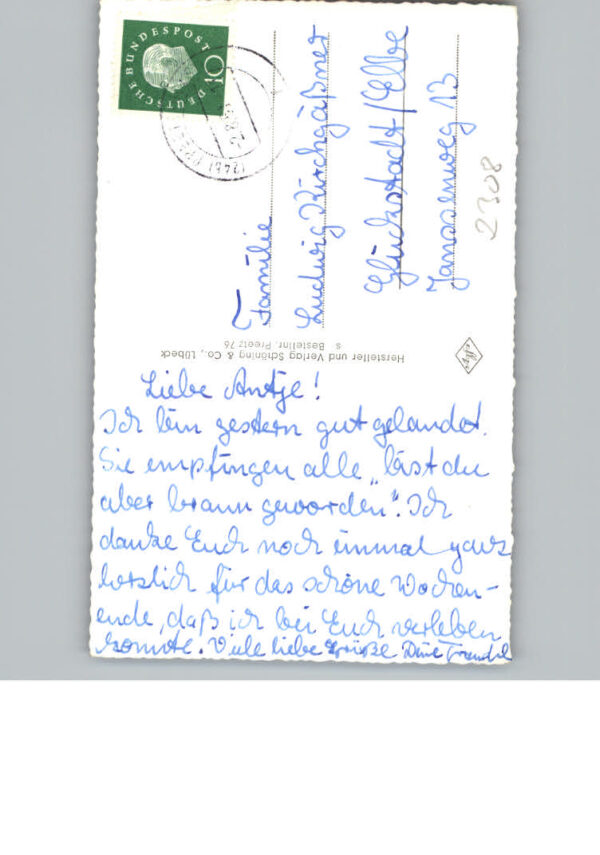 Liebe Antje!
Ich bin gestern gut gelandet.
Sie empfingen alle „bist du
aber braun geworden". Ich
danke Euch noch einmal ganz
herzlich für das schöne Wochen-
ende, daß ich bei Euch verleben
konnte. Viele liebe Grüße Deine
Familie
Ludwig Kirchgäßner
Glückstadt/Elbe
Janssenweg 13
2308
Hersteller und Verlag Schöning & Co., Lübeck
s Bestellnr. Preetz 76
DEUTSCHE BUNDESPOST
10
(24b) PREETZ